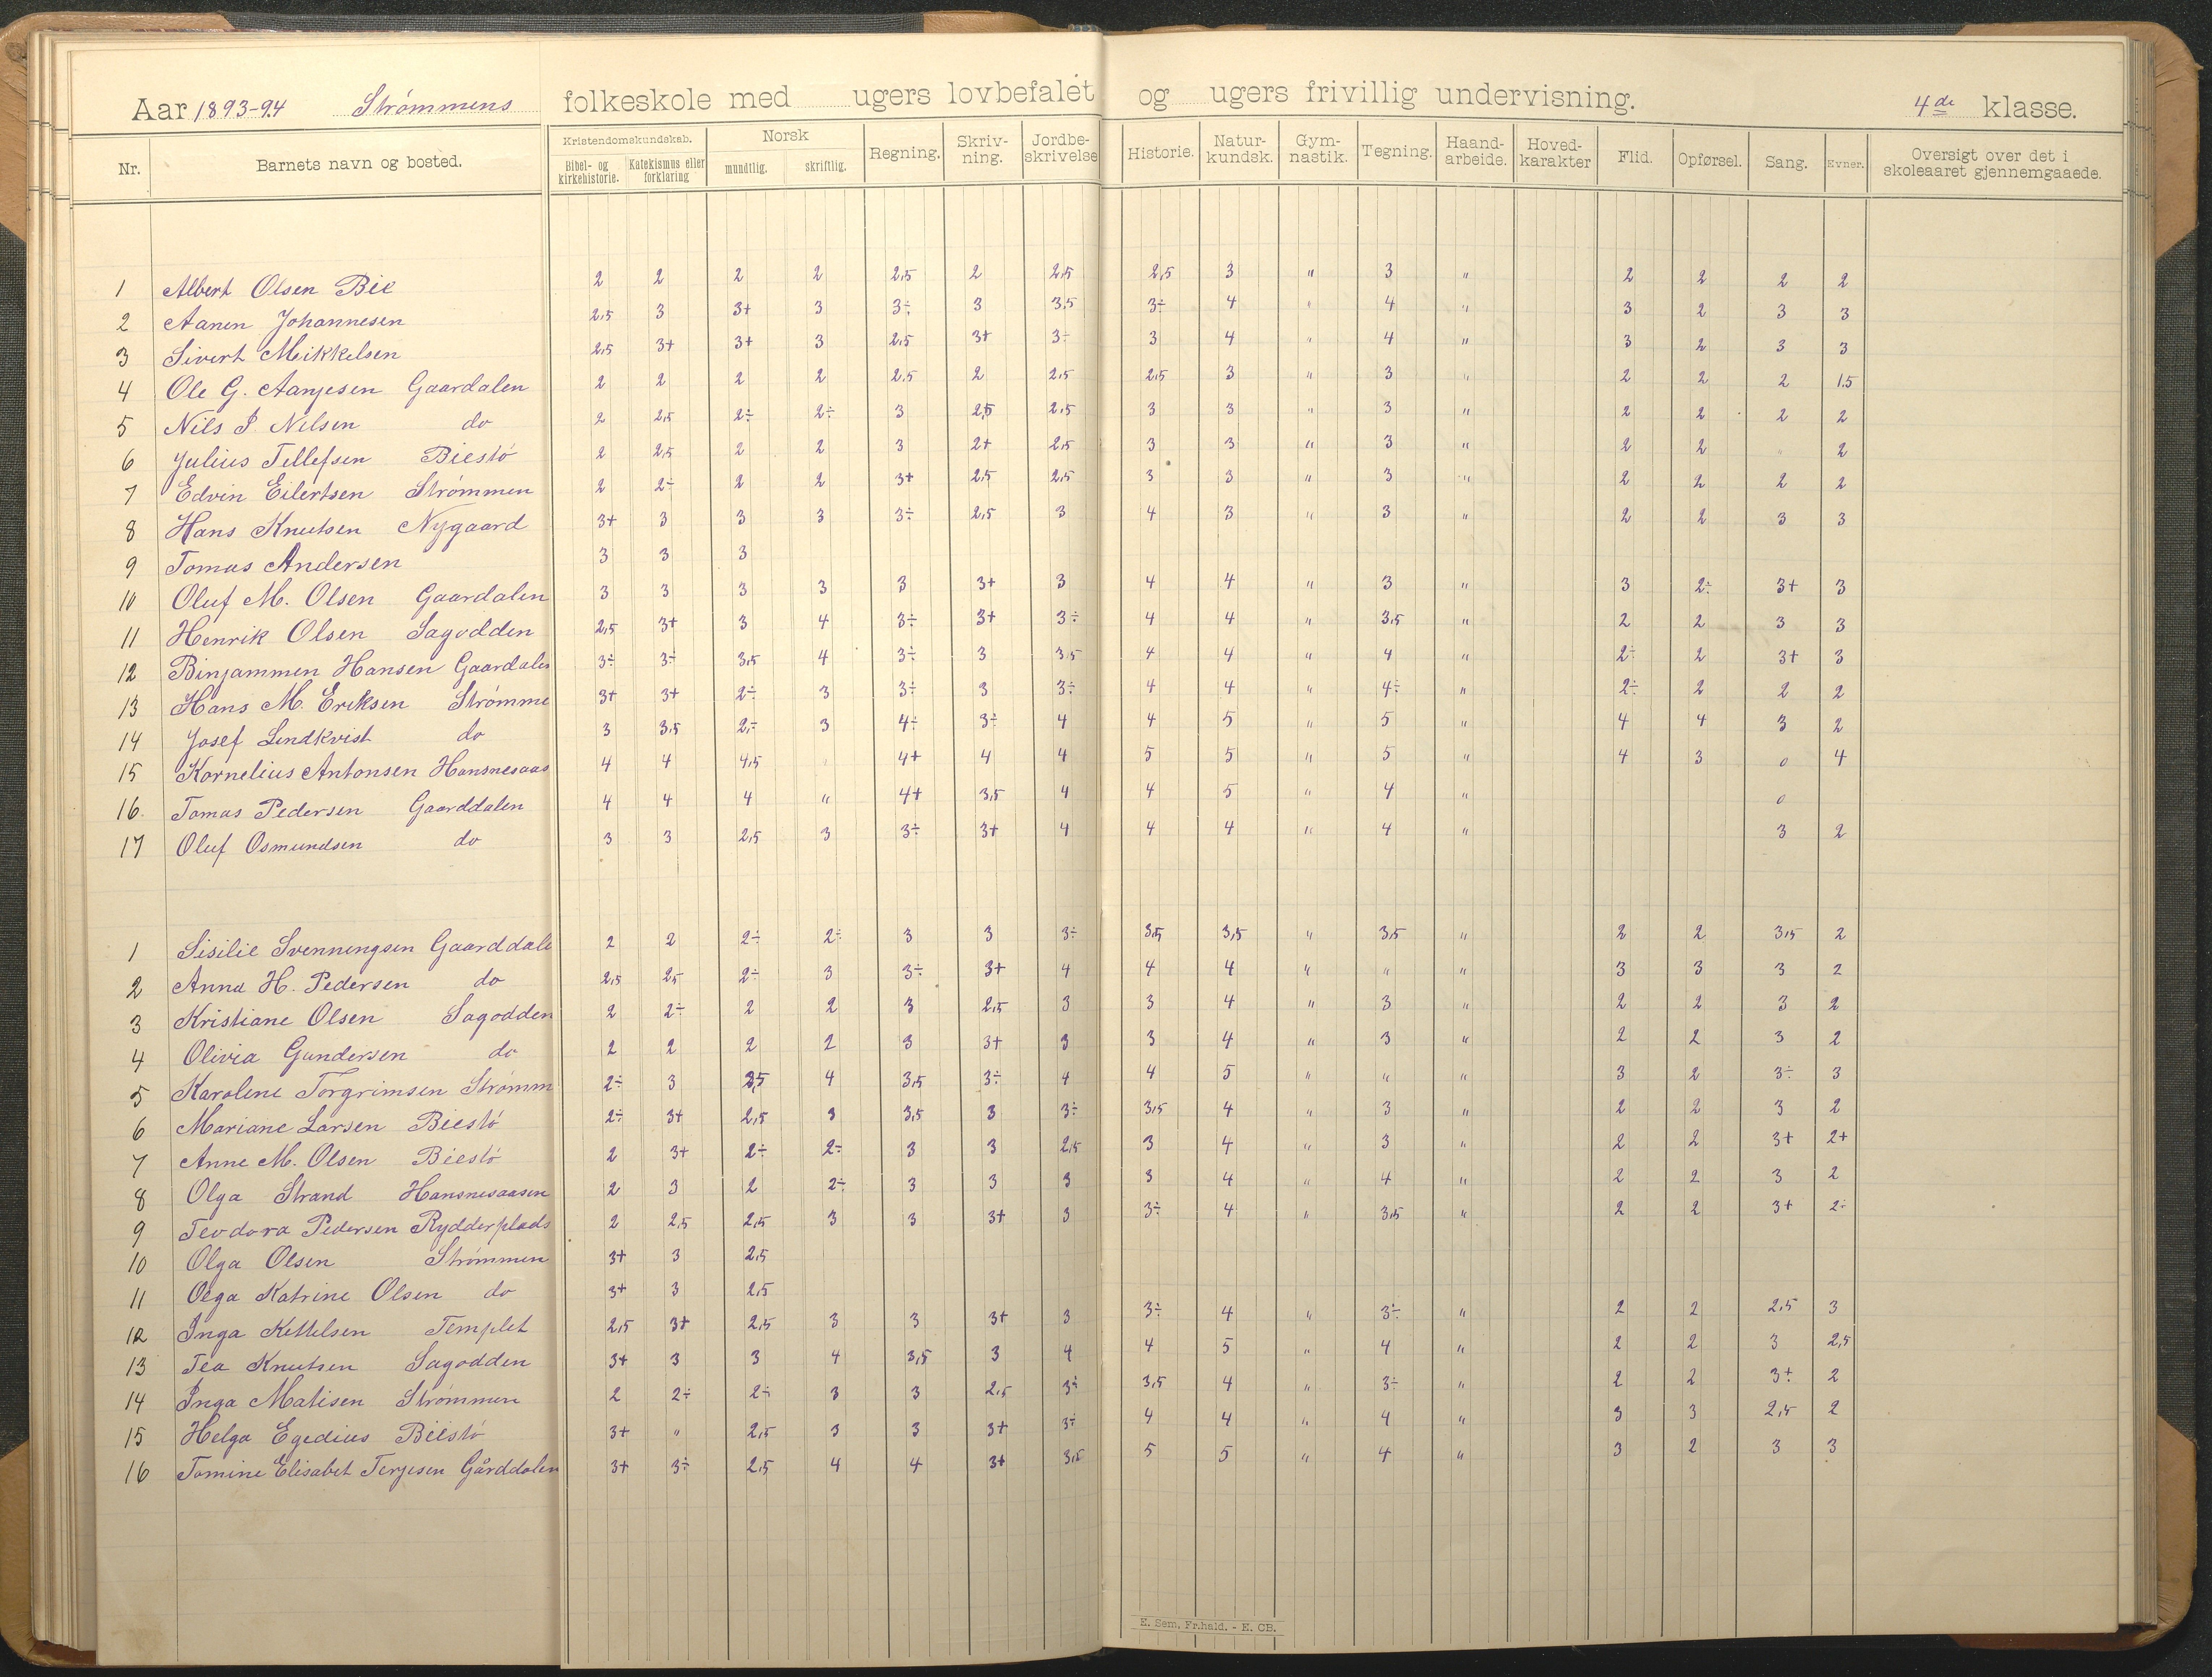 Aar 1893-94 Strømmens folkeskole med ugers lovbefalet og ugers frivillig undervisning. 4de klasse.
Nr. Barnets navn og bosted. Kristendomskundskab. Bibel- og kirkehistorie. Katekismus eller forklaring Norsk mundtlig. skriftlig. Regning. Skriv-ning. Jordbe-skrivelse Historie. Natur-kundsk. Gym-nastik. Tegning. Haand-arbeide. Hoved-karakter Flid. Opførsel. Sang. Evner. Oversigt over det i skoleaaret gjennemgaaede.
1 Albert Olsen Bie 2 2 2 2 2,5 2 2,5 2,5 3 " 3 " 2 2 2 2
2 Aanen Johannesen 2,5 3 3+ 3 3÷ 3 3,5 3÷ 4 " 4 " 3 2 3 3
3 Sivert Mikkelsen 2,5 3+ 3+ 3 2,5 3+ 3÷ 3 4 " 4 " 3 2 3 3
4 Ole G. Aanjesen Gaardalen 2 2 2 2 2,5 2 2,5 2,5 3 " 3 " 2 2 2 1.5
5 Nils P. Nilsen do 2 2,5 2÷ 2÷ 3 2,5 2,5 3 3 " 3 " 2 2 2 2
6 Julius Tellefsen Biestö 2 2,5 2 2 3 2+ 2,5 3 3 " 3 " 2 2 " 2
7 Edvin Eilertsen Strømmen 2 2÷ 2 2 3+ 2,5 2,5 3 3 " 3 " 2 2 2 2
8 Hans Knutsen Nygaard 3+ 3 3 3 3÷ 2,5 3 4 3 " 3 " 2 2 3 3
9 Tomas Andersen 3 3 3
10 Oluf M. Olsen Gaardalen 3 3 3 3 3 3+ 3 4 4 " 3 " 3 2÷ 3+ 3
11 Henrik Olsen Sagodden 2,5 3+ 3 4 3÷ 3+ 3÷ 4 4 " 3,5 " 2 2 3 3
12 Binjammen Hansen Gaardalen 3÷ 3÷ 3,5 4 3÷ 3 3,5 4 4 " 4 " 2÷ 2 3+ 3
13 Hans M. Eriksen Strømme 3+ 3+ 2÷ 3 3÷ 3 3÷ 4 4 " 4÷ " 2÷ 2 2 2
14 Josef Lindkvist do 3 3,5 2÷ 3 4÷ 3÷ 4 4 5 " 5 " 4 4 3 2
15 Kornelius Antonsen Hansnesaas 4 4 4,5 4+ 4 4 5 5 " 5 " 4 3 0 4
16. Tomas Pedersen Gaarddalen 4 4 4 " 4+ 3,5 4 4 5 " 4 " 0
17 Oluf Osmundsen do 3 3 2,5 3 3÷ 3+ 4 4 4 " 4 " 3 2
1 Sisilie Svenningsen Gaarddale 2 2 2÷ 2÷ 3 3 3÷ 3,5 3,5 " 3,5 " 2 2 3,5 2
2 Anna H. Pedersen do 2,5 2,5 2÷ 3 3÷ 3+ 4 4 4 " " " 3 3 3 2
3 Kristiane Olsen Sagodden 2 2÷ 2 2 3 2,5 3 3 4 " 3 " 2 2 3 2
4 Olivia Gundersen do 2 2 2 2 3 3+ 3 3 4 " 3 " 2 2 3 2
5 Karolene Torgrimsen Strømm 2÷ 3 3,5 4 3,5 3÷ 4 4 5 " " " 3 2 3÷ 3
6 Mariane Larsen Biestö 2÷ 3+ 2,5 3 3,5 3 3÷ 3,5 4 " 3 " 2 2 3 2
7 Anne M. Olsen Biestö 2 3+ 2÷ 2÷ 3 3 2,5 3 4 " 3 " 2 2 3+ 2+
8 Olga Strand Hansnesaasen 2 3 2 2÷ 3 3 3 3 4 " 4 " 2 2 3 2
9 Teodora Pedersen Rydderplads 2 2,5 2,5 3 3 3+ 3 3÷ 4 " 3,5 " 2 2 3+ 2÷
10 Olga Olsen Strømmen 3+ 3 2,5
11 Olga Katrine Olsen do 3+ 3 2,5
12 Inga Kettelsen Templet 2,5 3+ 2,5 3 3 3+ 3 3÷ 4 " 3÷ " 2 2 2,5 3
13 Tea Knutsen Sagodden 3+ 3 3 4 3,5 3 4 4 5 " 4 " 2 2 3 2,5
14 Inga Matisen Strømmen 2 2÷ 2÷ 3 3 2,5 3÷ 3,5 4 " 3÷ " 2 2 3+ 2
15 Helga Egedius Biestö 3+ " 2,5 3 3 3+ 3÷ 4 4 " 4 " 3 3 2,5 2
16 Tomine Elisabet Terjesen Gårddalen 3+ 3÷ 2,5 4 4 3+ 3,5 5 5 " 4 " 3 2 3 3
E. Sem, Fr.hald. - E. CB.